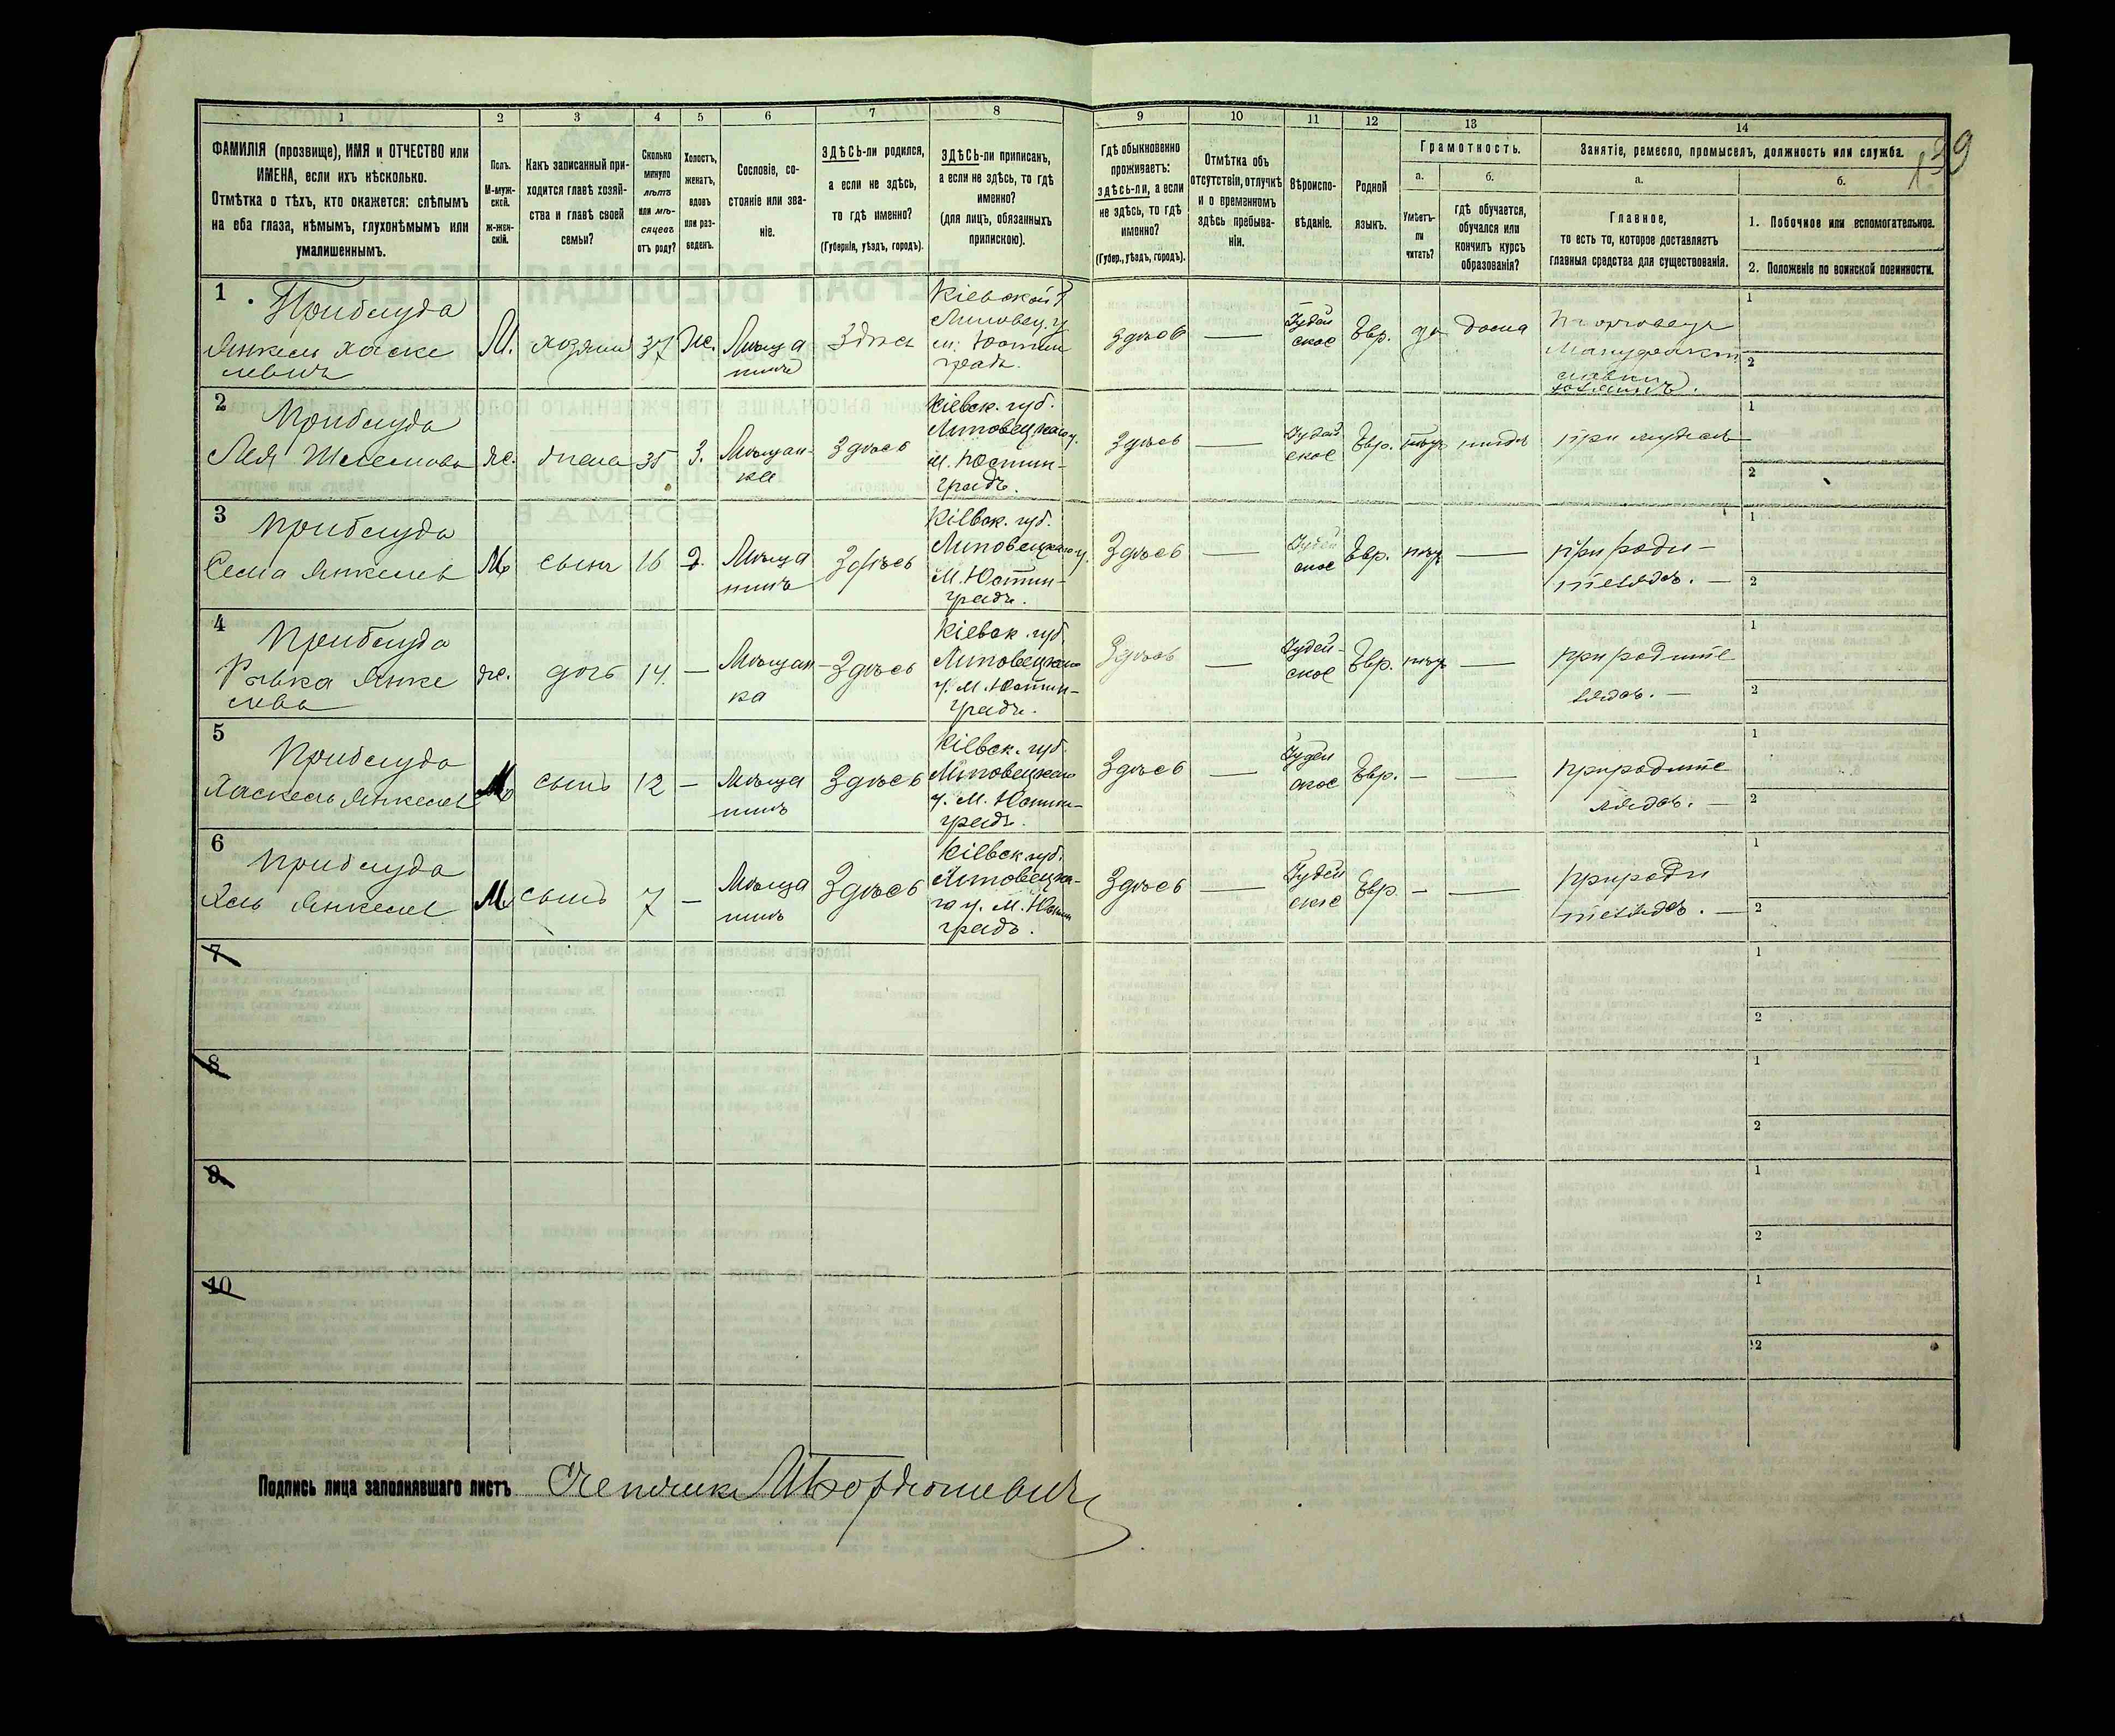 139
1 2 3 4 5 6 7 8 9 10 11 12 13 14
ФАМИЛІЯ (прозвище), ИМЯ и ОТЧЕСТВО или
ИМЕНА, если ихъ нѣсколько.
Отмѣтка о тѣхъ, кто окажется: слѣпымъ
на оба глаза, нѣмымъ, глухонѣмымъ или
умалишеннымъ.
Полъ.
М-муж-
ской.
Ж-жен-
скій.
Какъ записанный при-
ходится главѣ хозяй-
ства и главѣ своей
семьи?
Сколько
минуло
лѣтъ
или мѣ-
сяцевъ
отъ роду?
Холостъ,
женатъ,
вдовъ
или раз-
веденъ.
Сословіе, со-
стояніе или зва-
ніе.
ЗДѢСЬ-ли родился,
а если не здѣсь,
то гдѣ именно?
(Губернія, уѣздъ, городъ).
ЗДѢСЬ-ли приписанъ,
а если не здѣсь, то гдѣ
именно?
(для лицъ, обязанныхъ
припискою).
Гдѣ обыкновенно
проживаетъ:
здѣсь-ли, а если
не здѣсь, то гдѣ
именно?
(Губер., уѣздъ, городъ).
Отмѣтка объ
отсутствіи, отлучкѣ
и о временномъ
здѣсь пребыва-
ніи.
Вѣроиспо-
вѣданіе.
Родной
языкъ.
Грамотность.
а.
Умѣетъ-
ли
читать?
б.
гдѣ обучается,
обучался или
кончилъ курсъ
образованія?
Занятіе, ремесло, промыселъ, должность или служба.
а.
Главное,
то есть то, которое доставляетъ
главныя средства для существованія.
б.
1. Побочное или вспомогательное.
2. Положеніе по воинской повинности.
1
Приблуда
Янкель Хаске
левичъ
М.
хозяинъ
37
Ж.
Мѣща
нинъ
Здѣсь
Кіевской Г
Липовец. у
м. Юстин
градъ.
Здѣсь
—
Іудей
ское
Евр.
да
дома
Торговецъ
1
2
2
Приблуда
Лея
ж.
жена
35
З.
Мѣщан-
ка
Здѣсь
Кіевск. губ.
Липовецкаго у.
М. Юстин-
градъ.
Здѣсь
—
Іудей
ское
Евр.
нѣтъ
нигдѣ
при мужѣ
1
2
3
Приблуда
Янкелев
М
сынъ
16
Мѣща
нинъ
Здѣсь
Кіевск. губ.
Липовецкаго у.
М. Юстин-
градъ.
Здѣсь
—
Іудей
ское
Евр.
нѣтъ
—
при роди-
теляхъ. —
1
2
4
Приблуда
Ривка Янке
лева
ж.
дочь
14
—
Мѣщан-
ка
Здѣсь
Кіевск. губ.
Липовецкаго
у. М. Юстин-
градъ.
Здѣсь
—
Іудей-
ское
Евр.
нѣтъ
—
при родите
ляхъ. —
1
2
5
Приблуда
Хаскель Янкелев
М
сынъ
12
—
Мѣща
нинъ
Здѣсь
Кіевск. губ.
Липовецкаго
у. М. Юстин-
градъ.
Здѣсь
—
Іудей
ское
Евр.
—
—
при родите
ляхъ. —
1
2
6
Приблуда
Янкелев
М
сынъ
7
—
Мѣща
нинъ
Здѣсь
Кіевск губ.
Липовецка-
го у. М. Юстин
градъ.
Здѣсь
—
Іудей
ское
Евр
—
—
при роди
теляхъ. —
1
2
7
1
2
8
1
2
9
1
2
10
1
2
Подпись лица заполнявшаго листъ